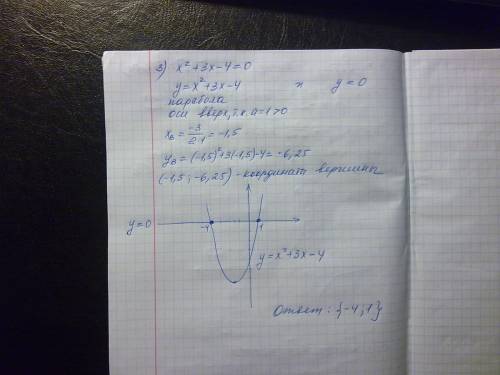 3) x² + 3x - 4 = 0
y = x² + 3x - 4 и y = 0
парабола
оси вверх, т.к. a = 1 > 0
x_в = -3/2·1 = -1,5
y_в = (-1,5)² + 3(-1,5) - 4 = -6,25
(-1,5; -6,25) - координаты вершины
y = 0 -4 1
y = x² + 3x - 4
Ответ: {-4; 1}